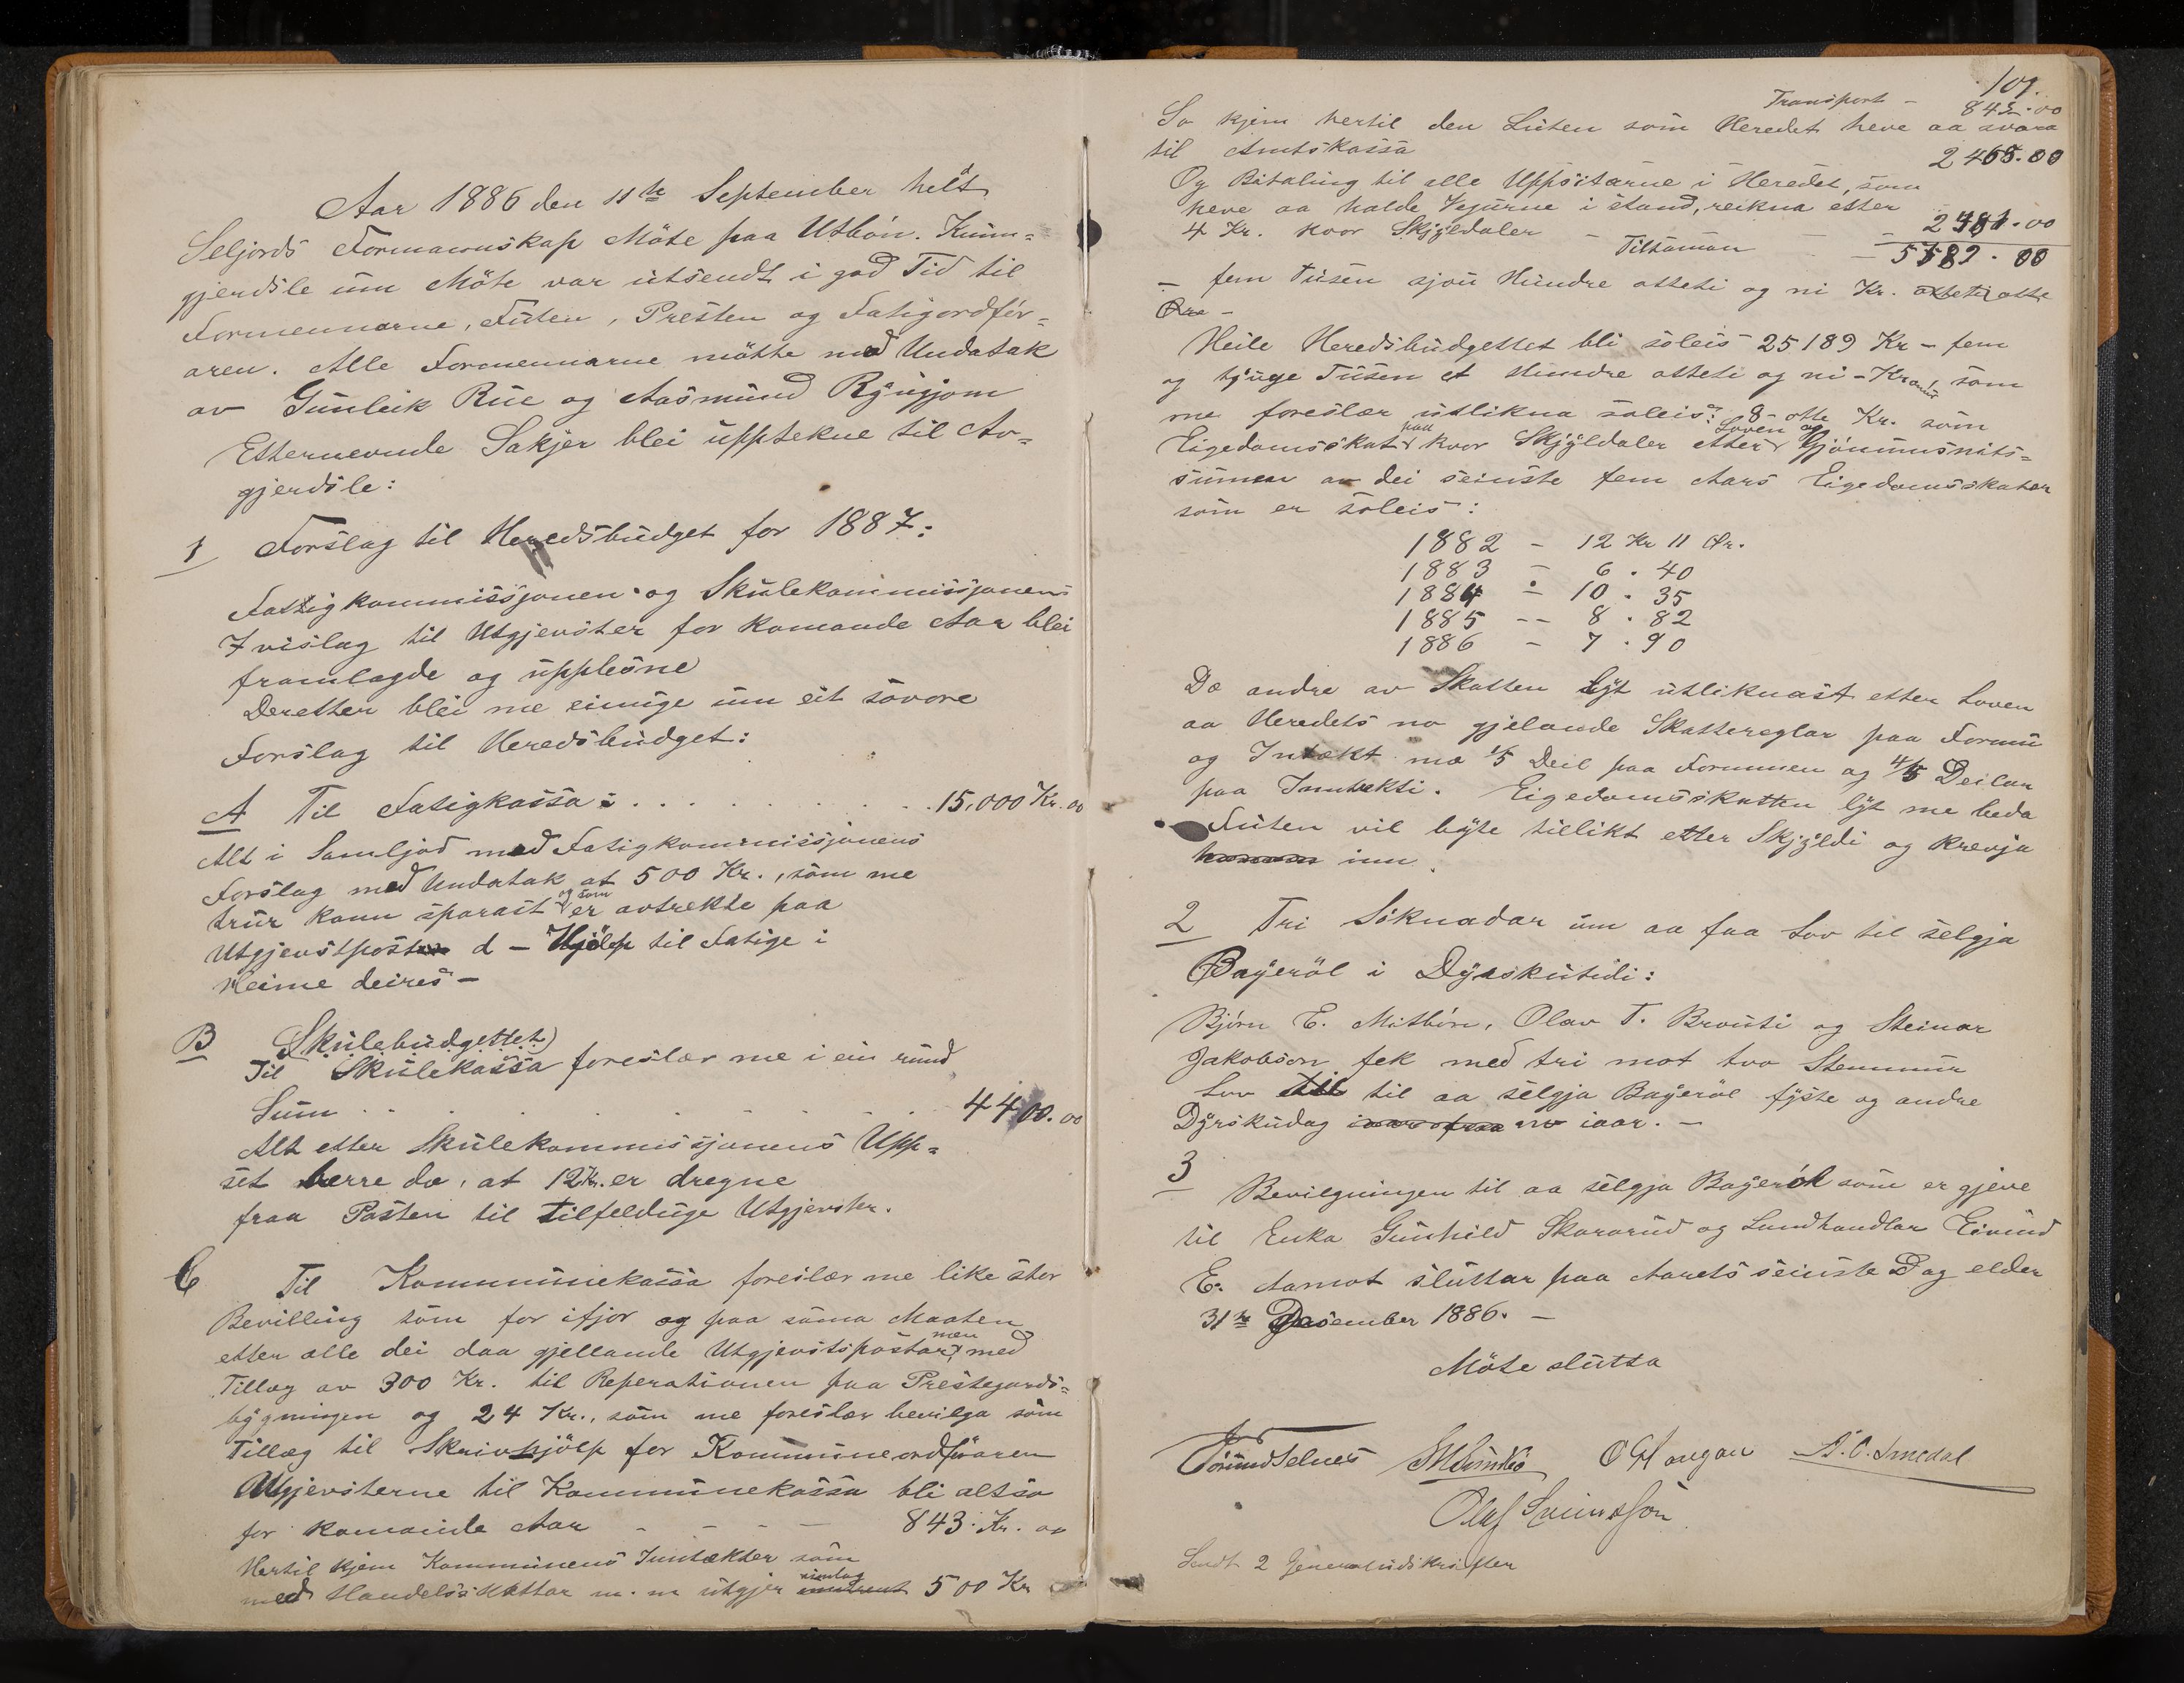 Aar 1886 den 11te September helt
Seljords Formannskap Möte paa Utbön. Kunn=
gjerdsle um Möte var utsendt i god Tid til
Formennarne, Futen, Presten og Fatigordför=
aren. Alle Formennarne mötte med Undatak
av Gunleik Rue og Aasmund Rÿngjom
Etternevnde Sakjer blei upptekne til Av=
gjerdsle:
1 Forslag til Heredsbudget for 1887:
Fattigkommissjonen og Skulekommissjonens
Tvislag til Utgjevster for komande Aar blei
framlagde og upplesne
Deretter blei me einige um eit sovore
Forslag til Heredsbudget:
A Til Fatigkassa: . . . . . . . . . 15,000 Kr. 00
Alt i Samljod med Fatigkommissjonens
Forslag med Undatak at 500 Kr., som me
trur kann sparast og som er avtrekte paa
Utgjevstposten d - Hjölp til Fatige i
Heime deires -
B (Skulebudgettet)
Til Skulekassa foreslær me i ein rund
Sum . . . . . . . . 4400.00
Alt etter Skulekommissjonens Upp=
set berre da, at 12 Kr. er dregne
fraa Posten til tilfelduge Utgjevster.
C Til Kommunekassa foreslær me like stor
Bevilling som for ifjor og paa sama Maaten
etter alle dei daa gjellande Utgjevstspostar, men med
Tillæg av 300 Kr. til Reperationen paa Prestegards=
bÿgningen og 24 Kr., som me foreslær bevilga som
Tillæg til Skrivhjölp for Kommuneordföraren
Utgjevsterne til Kommunekassa bli altso
for komande Aar - - - - 843 Kr. 00
Hertil kjem Kommunens Inntækter som
med Handelsskattar m. m utgjer 500 Kr
109.
Transport - 843.00
So kjem hertil den Luten som Heredet heve aa svara
til Amtskassa 2465.00
Og Bitaling til alle Uppsitarne i Heredet, som
heve aa halde Vegurne i stand, reikna etter
4 Kr. kvor Skjÿldaler - - - 2481.00
Tilsaman - - 5789.00
- fem Tusen sjou Hundre otteti og ni Kr. otteti otte
Öre -
Heile Heredsbudgettet bli soleis 25189 Kr - fem
og tjuge Tusen et Hundre otteti og ni - Kronur, som
me foreslær utlikna soleis: 8 - otte Kr. som
Eigedomsskat paa kvor Skjÿldaler etter Loven og Gjönnumsnits=
summar av dei seinste fem Aars Eigedomsskatar
som er soleis:
1882 - 12 Kr 11 Ör.
1883 - 6 . 40
1884 - 10 . 35
1885 -- 8 . 82
1886 - 7 . 90
De andre av Skatten lÿt utliknast etter Loven
aa Heredets no gjelande Skattereglar paa Formu
og Intækt mæ 1/5 Deil paa Formuen og 4/5 Deilar
paa Inntækti. Eigedomsskatten lÿt me beda
Futen vil bÿte tillikt etter Skjÿldi og krevja
honom inn.
2 Tri Söknadar um aa faa Lov til selgja
Bayeröl i Dÿrskutidi:
Björn E. Mitbön, Olav T. Brouti og Steinar
Jakobson fek med tri mot tvo Stemmur
Lov til aa selgja Bayeröl fÿste og andre
Dÿrskudag iaar. -
3 Bevilgningen til aa selgja Bayeröl som er gjeve
til Enka Gunhild Skararud og Landhandlar Eivind
E. Aamot sluttar paa Aarets seinste Dag elder
31te Desember 1886. -
Möte slutta
Torund Selnes O G Haugan A. O. Smedal
Olaf Sveinsson
Sendt 2 Genenaludskrifter